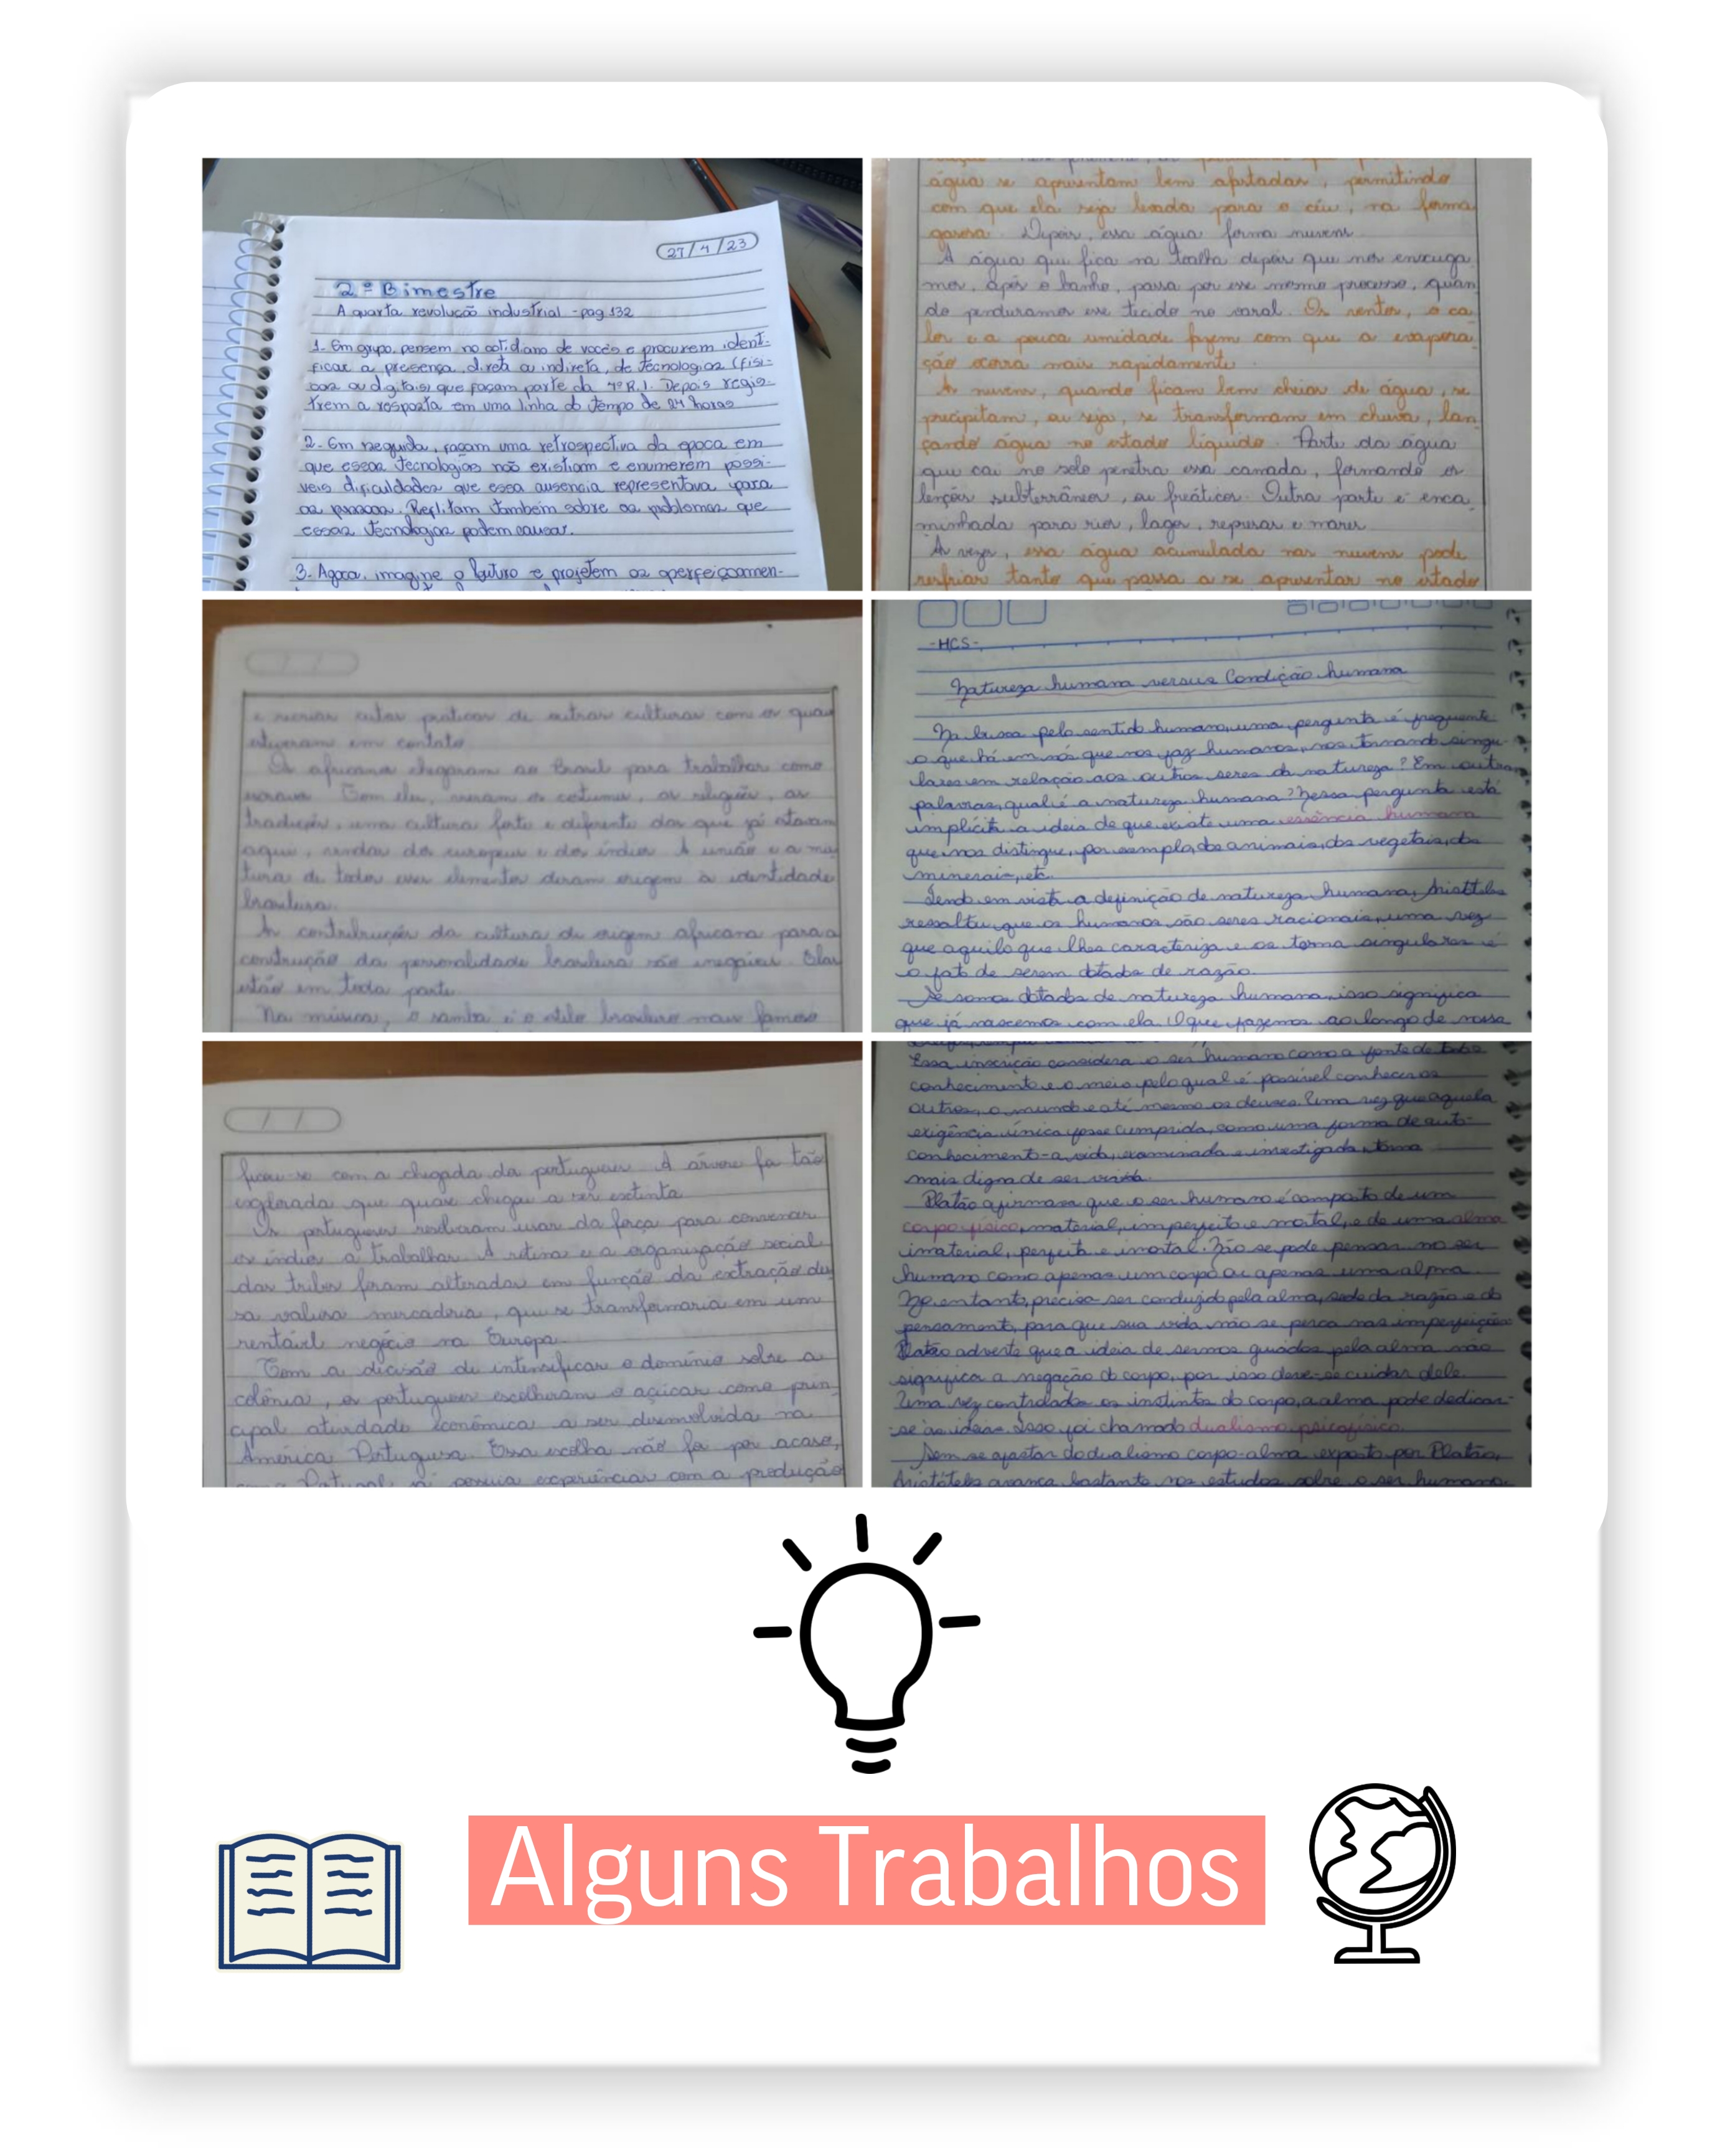 27/4/23
2º Bimestre
A quarta revolução industrial - pag 132
1. Em grupo, pensem no cotidiano de vocês e procurem identi-
ficar a presença, direta ou indireta, de tecnologias (físi-
cas ou digitais) que façam parte da 4ª R.I. Depois regis-
trem a resposta em uma linha do tempo de 24 horas
2. Em seguida, façam uma retrospectiva da epoca em
que essas tecnologias não existiam e enumerem possi-
veis dificuldades que essa ausencia representava para
as pessoas. Reflitam também sobre os problemas que
essas tecnologias podem causar.
3. Agora, imagine o futuro e projetem os aperfeiçoamen-
água se apresentam bem afastadas, permitindo
com que ela seja levada para o céu, na forma
gasosa. Depois, essa água forma nuvens.
A água que fica na toalha depois que nos enxuga
mos, após o banho, passa por esse mesmo processo, quan
do penduramos esse tecido no varal. Os ventos, o ca
lor e a pouca umidade fazem com que a evapora
ção ocorra mais rapidamente.
As nuvens, quando ficam bem cheias de água, se
precipitam, ou seja, se transformam em chuva, lan
çando água no estado líquido. Parte da água
que cai no solo penetra essa camada, formando os
lençóis subterrâneos, ou freáticos. Outra parte é enca
minhada para rios, lagos, represas e mares.
Às vezes, essa água acumulada nas nuvens pode
resfriar tanto que passa a se apresentar no estado
e recriar outras práticas de outras culturas com os quais
estiveram em contato.
Os africanos chegaram ao Brasil para trabalhar como
escravos. Com eles, vieram os costumes, as religiões, as
tradições, uma cultura forte e diferente das que já estavam
aqui, vindas dos europeus e dos índios. A união e a mis
tura de todos esses elementos deram origem à identidade
brasileira.
As contribuições da cultura de origem africana para a
construção da personalidade brasileira são inegáveis. Elas
estão em toda parte.
Na música, o samba é o estilo brasileiro mais famoso
-HCS-
Natureza humana versus Condição humana
Na busca pelo sentido humano, uma pergunta é frequente
o que há em nós que nos faz humanos, nos tornando singu-
lares em relação aos outros seres da natureza? Em outras
palavras, qual é a natureza humana? Nessa pergunta está
implícita a ideia de que existe uma essência humana
que nos distingue, por exemplo, dos animais, dos vegetais, dos
minerais, etc.
Tendo em vista a definição de natureza humana, Aristóteles
ressaltou que os humanos são seres racionais, uma vez
que aquilo que lhes caracteriza e os torna singulares é
o fato de serem dotados de razão.
Se somos dotados de natureza humana, isso significa
que já nascemos com ela. O que fazemos ao longo de nossa
ficou-se com a chegada da portugueses. A árvore foi tão
explorada que quase chegou a ser extinta.
Os portugueses resolveram usar da força para convencer
os índios a trabalhar. A rotina e a organização social
das tribos foram alteradas em função da extração des
sa valiosa mercadoria, que se transformaria em um
rentável negócio na Europa.
Com a decisão de intensificar o domínio sobre a
colônia, os portugueses escolheram o açúcar como prin
cipal atividade econômica a ser desenvolvida na
América Portuguesa. Essa escolha não foi por acaso,
Portugal já possuía experiências com a produção
Essa inscrição considera o ser humano como a fonte de todo
conhecimento e o meio pelo qual é possível conhecer os
outros, o mundo e até mesmo os deuses. Uma vez que aquela
exigência única fosse cumprida, como uma forma de auto-
conhecimento-a vida, examinada e investigada, torna
mais digna de ser vivida.
Platão afirmava que o ser humano é composto de um
corpo físico, material, imperfeito e mortal, e de uma alma
imaterial, perfeita e imortal. Não se pode pensar no ser
humano como apenas um corpo ou apenas uma alma.
No entanto, precisa ser conduzido pela alma, sede da razão e do
pensamento, para que sua vida não se perca nas imperfeições
Platão adverte que a ideia de sermos guiados pela alma não
significa a negação do corpo, por isso deve-se cuidar dele.
Uma vez controlados os instintos do corpo, a alma pode dedicar-
-se às ideias. Isso foi chamado dualismo psicofísico.
Sem se afastar do dualismo corpo-alma exposto por Platão,
Aristóteles avança bastante nos estudos sobre o ser humano.
Alguns Trabalhos